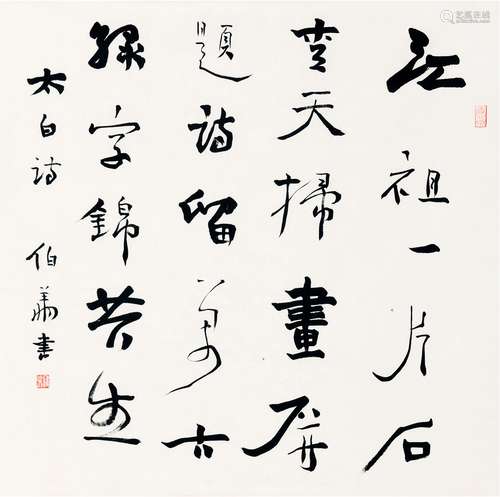 江祖一片石
青天掃畫屏
題詩留萬古
綠字錦苔生
太白詩 伯華書
艺狐在线